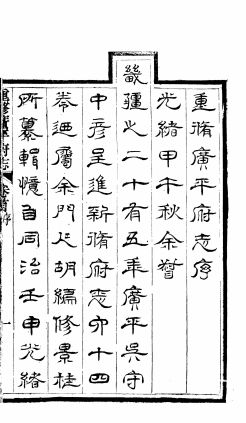 重脩廣平府志序
光緒甲午秋余督
畿疆之二十有五年廣平吳守
中彥呈進新脩府志六十四
卷迺屬余門人胡編修景桂
所纂輯憶自同治壬申光緒
重修廣平府志 卷首序 一